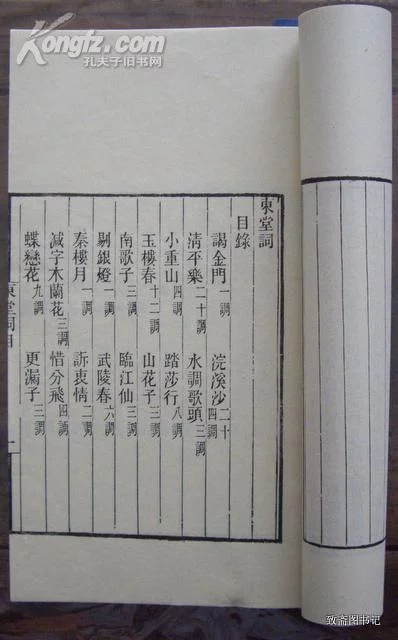 Kongfz.com
孔夫子旧书网
東堂詞
目錄
謁金門一調 浣溪沙二十四調
清平樂二十調 水調歌頭三調
小重山四調 踏莎行八調
玉樓春十二調 山花子三調
南歌子三調 臨江仙三調
剔銀燈一調 武陵春六調
秦樓月一調 訴衷情二調
減字木蘭花三調 惜分飛四調
蝶戀花九調 更漏子三調
東堂詞目
一
致斋图书记